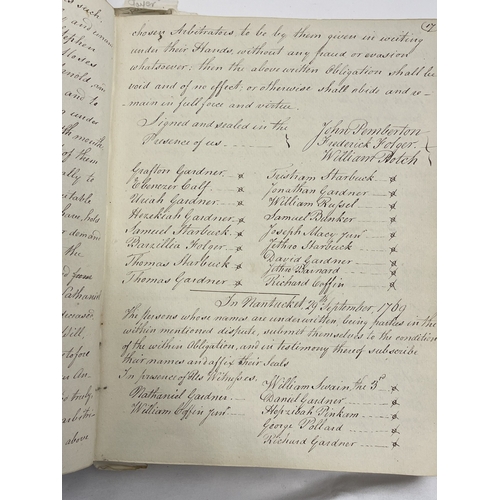 chosen Arbitrators to be by them given in writing
under their Hands, without any fraud or evasion
whatsoever: then the above written Obligation shall be
void and of no effect: or otherwise shall abide and re-
main in full force and virtue.
Signed and sealed in the
Presence of us
John Pemberton
Frederick Folger
William Rotch
Grafton Gardner
Ebenezer Calf
Uriah Gardner
Hezekiah Gardner
Samuel Starbuck
Barzilla Folger
Thomas Starbuck
Thomas Gardner
Tristram Starbuck
Jonathan Gardner
William Russel
Samuel Bunker
Joseph Macy Junr
Jethro Starbuck
David Gardner
Jethro Barnard
Richard Coffin
In Nantucket, 29th September, 1789
The persons whose names are underwritten, being parties in the
within mentioned dispute, submit themselves to the condition
of the within Obligation, and in testimony thereof subscribe
their names and affix their Seals
In presence of Us Witnesses,
Nathaniel Gardner
William Coffin Junr
William Swain the 3rd
Daniel Gardner
Hepzibah Pinkam
George Pollard
Richard Gardner